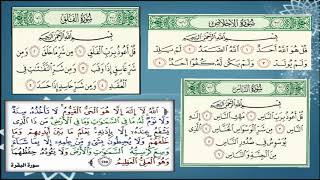 سُورَةُ الإِخْلَاصِ
بِسْمِ اللَّهِ الرَّحْمَٰنِ الرَّحِيمِ
قُلْ هُوَ اللَّهُ أَحَدٌ ١ اللَّهُ الصَّمَدُ ٢ لَمْ يَلِدْ
وَلَمْ يُولَدْ ٣ وَلَمْ يَكُنْ لَهُ كُفُوًا أَحَدٌ ٤
سُورَةُ الفَلَقِ
بِسْمِ اللَّهِ الرَّحْمَٰنِ الرَّحِيمِ
قُلْ أَعُوذُ بِرَبِّ الْفَلَقِ ١ مِنْ شَرِّ مَا خَلَقَ ٢
وَمِنْ شَرِّ غَاسِقٍ إِذَا وَقَبَ ٣ وَمِنْ شَرِّ النَّفَّاثَاتِ فِي
الْعُقَدِ ٤ وَمِنْ شَرِّ حَاسِدٍ إِذَا حَسَدَ ٥
سُورَةُ النَّاسِ
بِسْمِ اللَّهِ الرَّحْمَٰنِ الرَّحِيمِ
قُلْ أَعُوذُ بِرَبِّ النَّاسِ ١ مَلِكِ النَّاسِ ٢ إِلَٰهِ
النَّاسِ ٣ مِنْ شَرِّ الْوَسْوَاسِ الْخَنَّاسِ ٤ الَّذِي
يُوَسْوِسُ فِي صُدُورِ النَّاسِ ٥
مِنَ الْجِنَّةِ وَالنَّاسِ ٦
اللَّهُ لَا إِلَٰهَ إِلَّا هُوَ الْحَيُّ الْقَيُّومُ لَا تَأْخُذُهُ سِنَةٌ
وَلَا نَوْمٌ لَهُ مَا فِي السَّمَاوَاتِ وَمَا فِي الْأَرْضِ مَنْ ذَا الَّذِي
يَشْفَعُ عِنْدَهُ إِلَّا بِإِذْنِهِ يَعْلَمُ مَا بَيْنَ أَيْدِيهِمْ وَمَا
خَلْفَهُمْ وَلَا يُحِيطُونَ بِشَيْءٍ مِنْ عِلْمِهِ إِلَّا بِمَا شَاءَ
وَسِعَ كُرْسِيُّهُ السَّمَاوَاتِ وَالْأَرْضَ وَلَا يَئُودُهُ حِفْظُهُمَا
وَهُوَ الْعَلِيُّ الْعَظِيمُ ٢٥٥
سورة البقرة